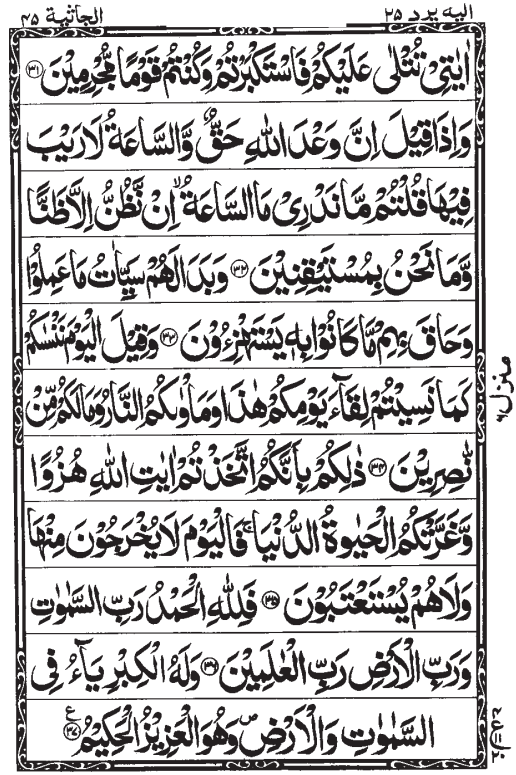 اليه يرد ۲۵
الجاثية ۴۵
اٰيٰتِىْ تُتْلٰى عَلَيْكُمْ فَاسْتَكْبَرْتُمْ وَكُنْتُمْ قَوْمًا مُّجْرِمِيْنَ ۳۱
وَاِذَا قِيْلَ اِنَّ وَعْدَ اللّٰهِ حَقٌّ وَّالسَّاعَةُ لَا رَيْبَ
فِيْهَا قُلْتُمْ مَّا نَدْرِىْ مَا السَّاعَةُ ۙ اِنْ نَّظُنُّ اِلَّا ظَنًّا
وَّمَا نَحْنُ بِمُسْتَيْقِنِيْنَ ۳۲ وَبَدَا لَهُمْ سَيِّاٰتُ مَا عَمِلُوْا
وَحَاقَ بِهِمْ مَّا كَانُوْا بِهٖ يَسْتَهْزِءُوْنَ ۳۳ وَقِيْلَ الْيَوْمَ نَنْسٰىكُمْ
كَمَا نَسِيْتُمْ لِقَآءَ يَوْمِكُمْ هٰذَا وَمَاْوٰىكُمُ النَّارُ وَمَا لَكُمْ مِّنْ
نّٰصِرِيْنَ ۳۴ ذٰلِكُمْ بِاَنَّكُمُ اتَّخَذْتُمْ اٰيٰتِ اللّٰهِ هُزُوًا
وَّغَرَّتْكُمُ الْحَيٰوةُ الدُّنْيَا ۚ فَالْيَوْمَ لَا يُخْرَجُوْنَ مِنْهَا
وَلَا هُمْ يُسْتَعْتَبُوْنَ ۳۵ فَلِلّٰهِ الْحَمْدُ رَبِّ السَّمٰوٰتِ
وَرَبِّ الْاَرْضِ رَبِّ الْعٰلَمِيْنَ ۳۶ وَلَهُ الْكِبْرِيَآءُ فِى
السَّمٰوٰتِ وَالْاَرْضِ ۪ وَهُوَ الْعَزِيْزُ الْحَكِيْمُ ۳۷
منزل ۶